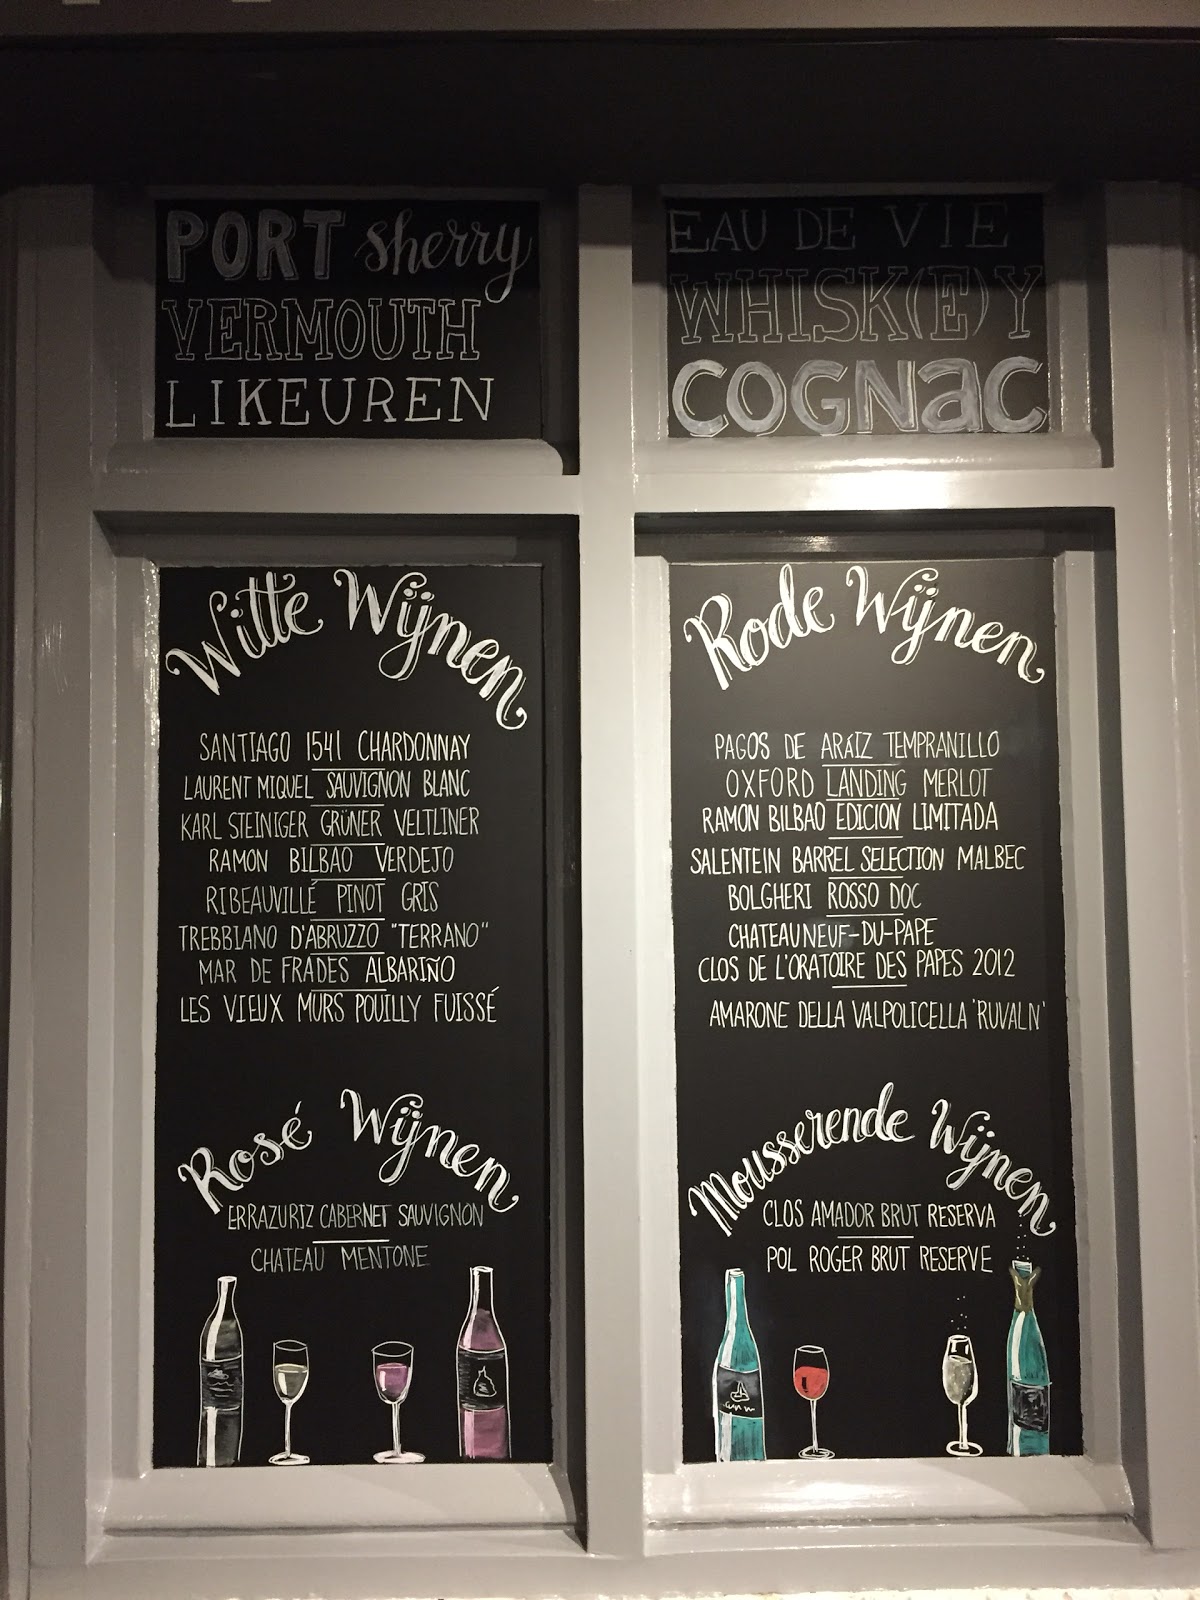 PORT sherry
VERMOUTH
LIKEUREN
EAU DE VIE
WHISK(E)Y
COGNAC
Witte Wijnen
SANTIAGO 1541 CHARDONNAY
LAURENT MIQUEL SAUVIGNON BLANC
KARL STEINIGER GRÜNER VELTLINER
RAMON BILBAO VERDEJO
RIBEAUVILLÉ PINOT GRIS
TREBBIANO D'ABRUZZO "TERRANO"
MAR DE FRADES ALBARIÑO
LES VIEUX MURS POUILLY FUISSÉ
Rosé Wijnen
ERRAZURIZ CABERNET SAUVIGNON
CHATEAU MENTONE
Rode Wijnen
PAGOS DE ARÁIZ TEMPRANILLO
OXFORD LANDING MERLOT
RAMON BILBAO EDICION LIMITADA
SALENTEIN BARREL SELECTION MALBEC
BOLGHERI ROSSO DOC
CHATEAUNEUF-DU-PAPE
CLOS DE L'ORATOIRE DES PAPES 2012
AMARONE DELLA VALPOLICELLA 'RUVALN'
Mousserende Wijnen
CLOS AMADOR BRUT RESERVA
POL ROGER BRUT RESERVE